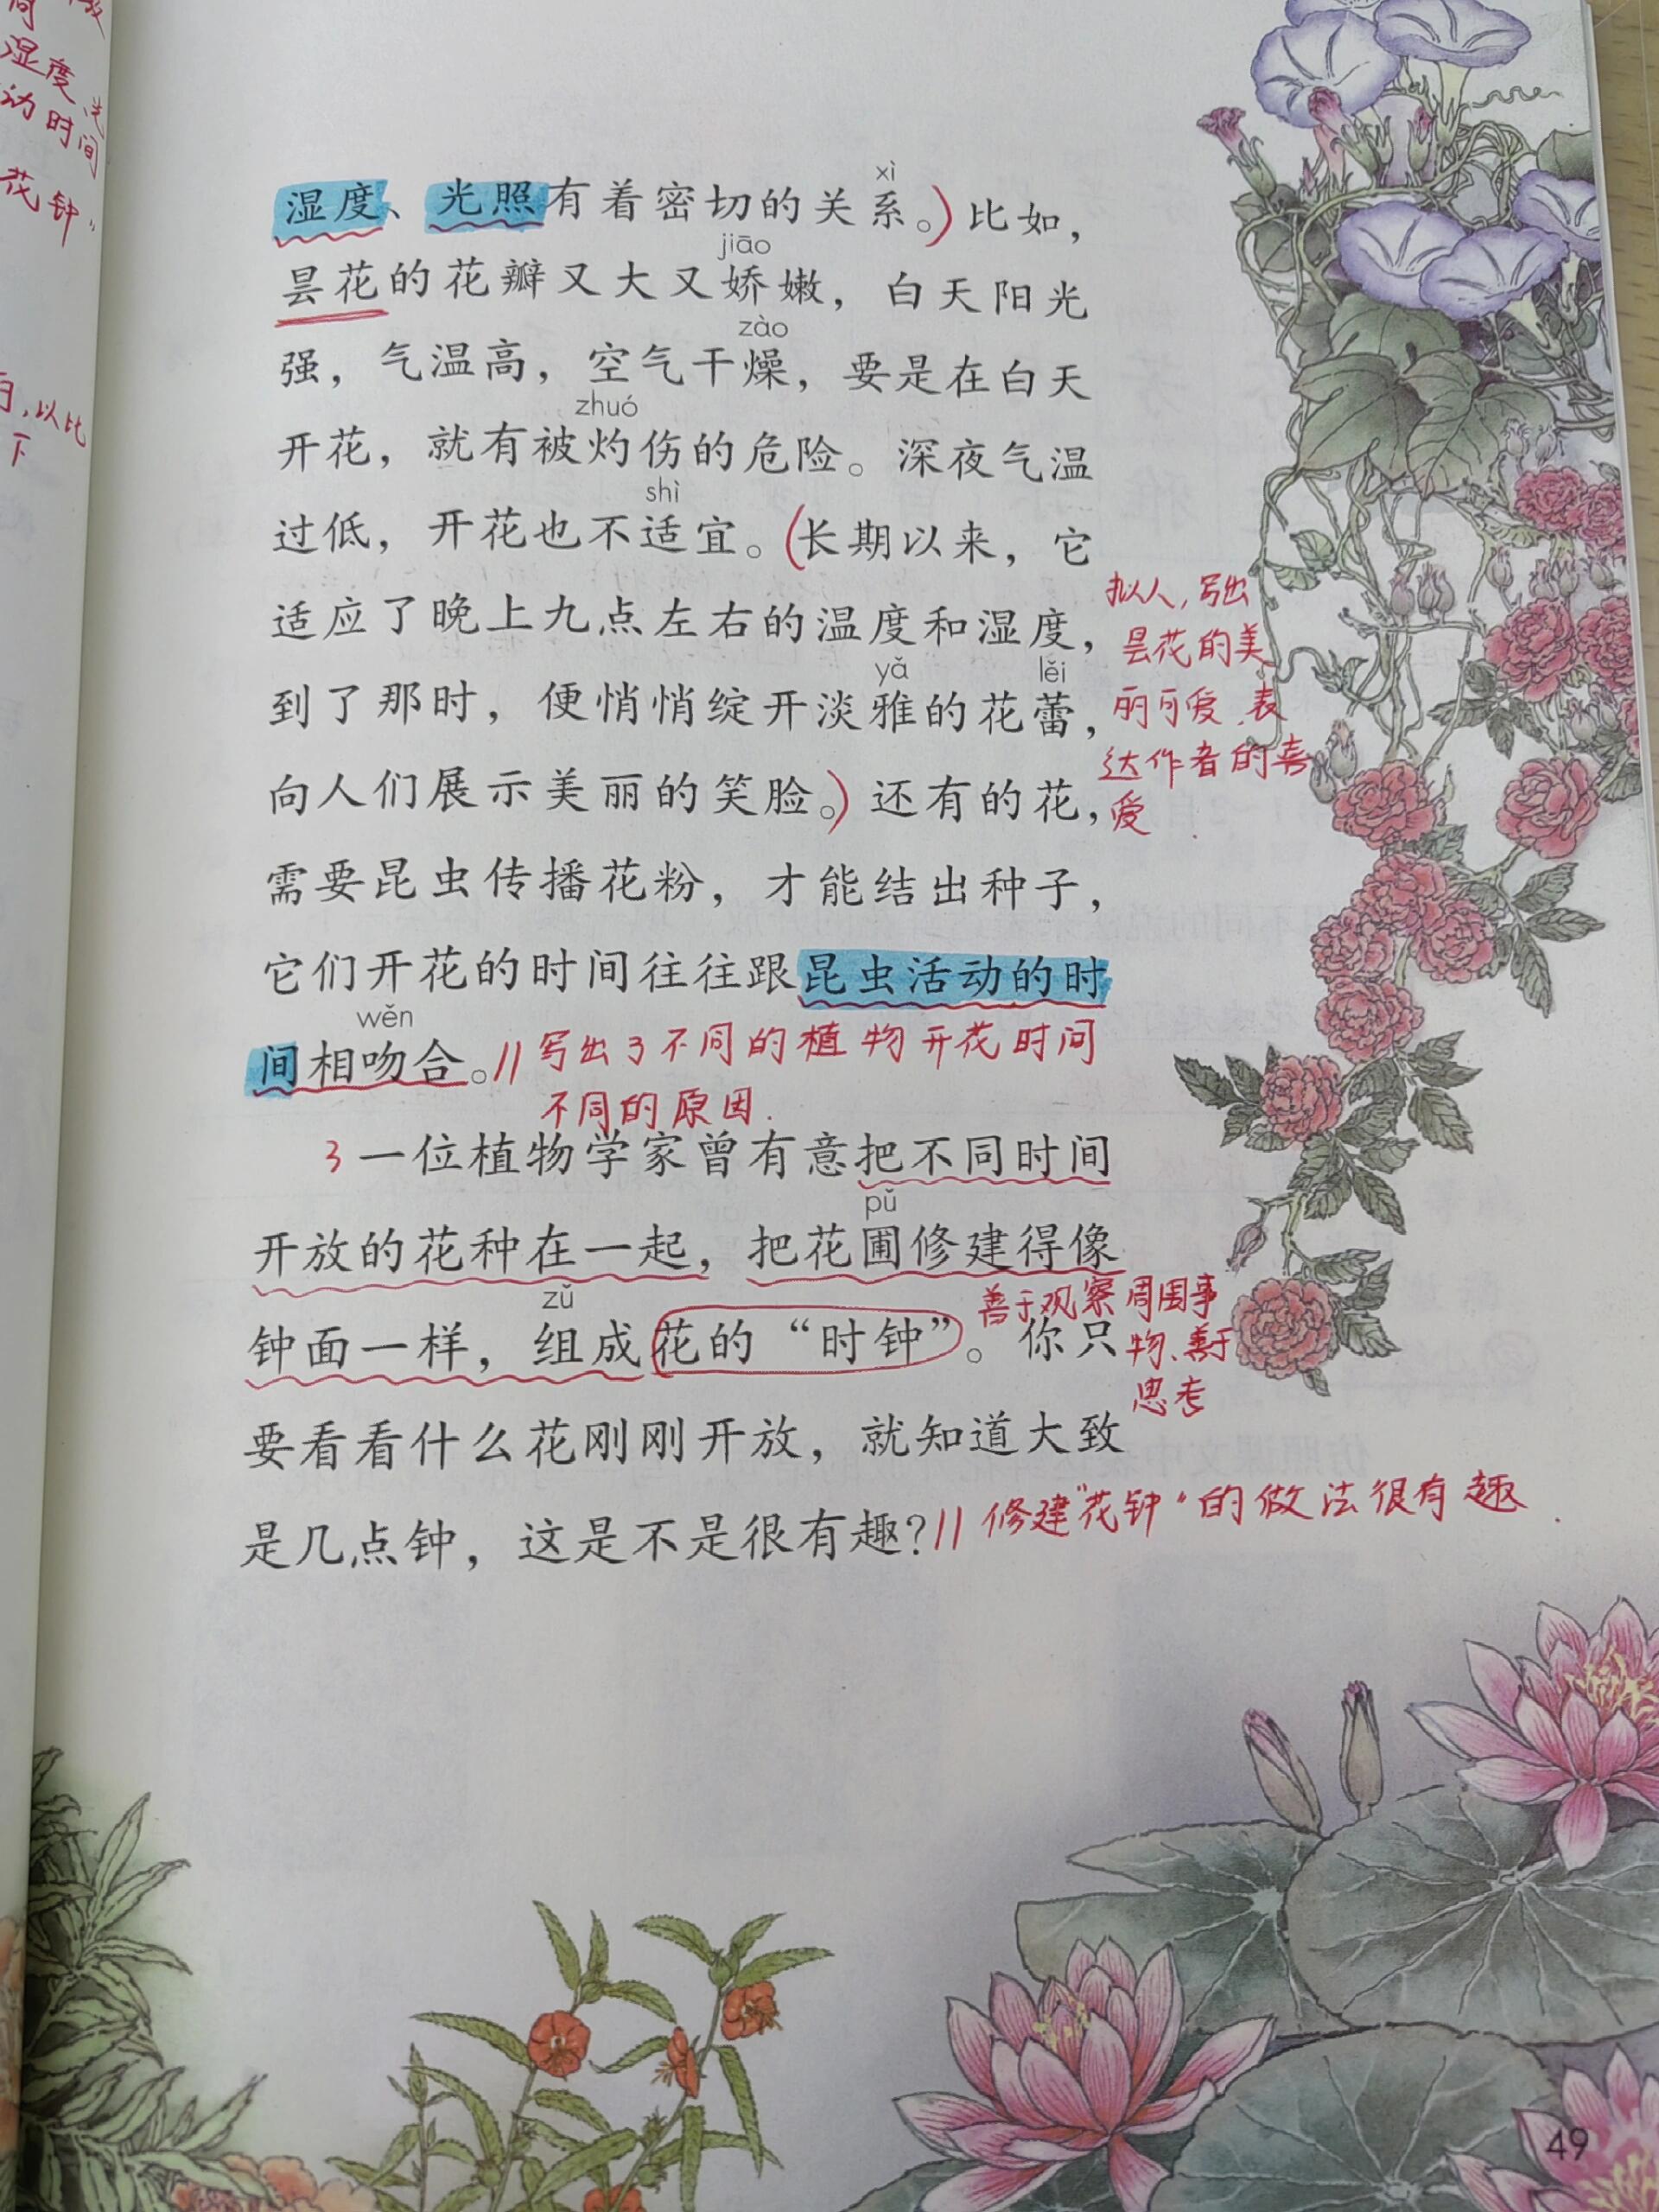 湿度
动时间
花钟”
以比
下
xì
湿度、光照有着密切的关系。)比如，
jiāo
昙花的花瓣又大又娇嫩，白天阳光
zào
强，气温高，空气干燥，要是在白天
zhuó
开花，就有被灼伤的危险。深夜气温
shì
过低，开花也不适宜。(长期以来，它
适应了晚上九点左右的温度和湿度，
yǎ lěi
到了那时，便悄悄绽开淡雅的花蕾，
向人们展示美丽的笑脸。)还有的花，
需要昆虫传播花粉，才能结出种子，
它们开花的时间往往跟昆虫活动的时
wěn
间相吻合。//
拟人，写出
昙花的美
丽可爱、表
达作者的喜
爱
写出了不同的植物开花时间
不同的原因.
3 一位植物学家曾有意把不同时间
pǔ
开放的花种在一起，把花圃修建得像
zǔ
钟面一样，组成花的“时钟”。你只
善于观察周围事
物、善于
思考
要看看什么花刚刚开放，就知道大致
是几点钟，这是不是很有趣?//
修建“花钟”的做法很有趣.
49